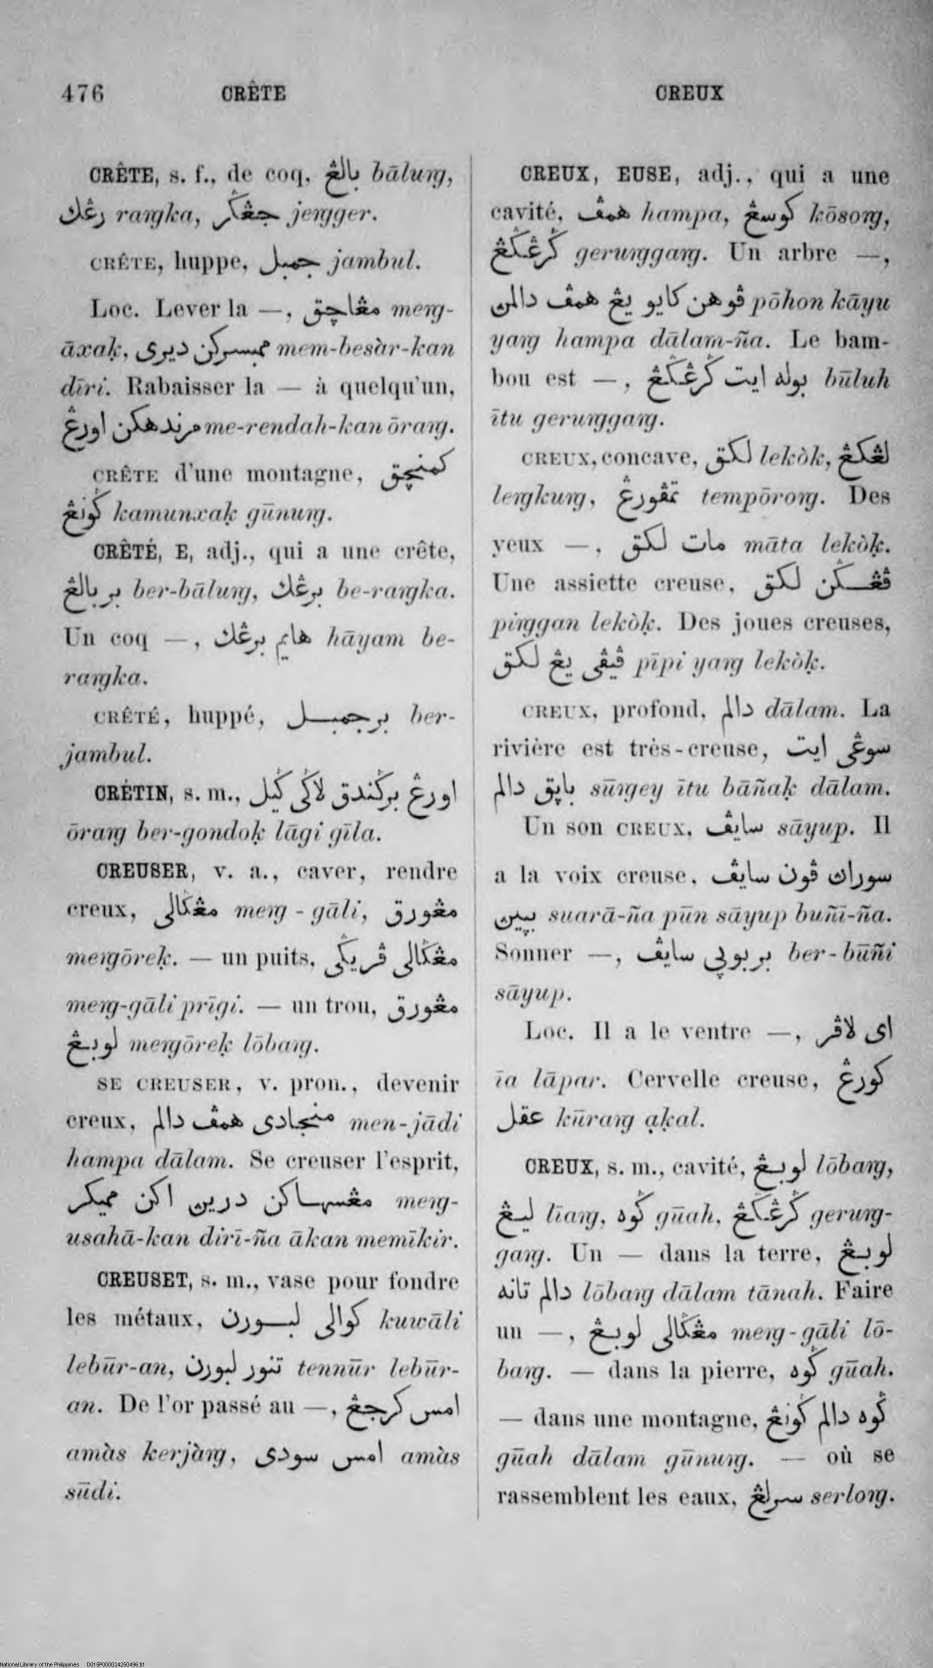 476 CRÊTE CREUX
CRÊTE, s. f., de coq, بالڠ bālurg,
رڠك rargka, جڠݢر jergger.
CRÊTE, huppe, جمبل jambul.
Loc. Lever la —, مڠاچق merg-
āxaḳ, ممبسركن ديرى mem-besàr-kan
dīri. Rabaisser la — à quelqu'un,
مرندهكن اورڠ me-rendah-kan ōrarg.
CRÊTE d'une montagne, كمنچق
ݢونڠ kamunxaḳ gūnurg.
CRÊTÉ, E, adj., qui a une crête,
بر بالڠ ber-bālurg, برڠك be-rargka.
Un coq —, هايم برڠك hāyam be-
rargka.
CRÊTÉ, huppé, برجمبل ber-
jambul.
CRÉTIN, s. m., اورڠ برݢندق لاݢى ݢيل
ōrarg ber-gondoḳ lāgi gīla.
CREUSER, v. a., caver, rendre
creux, مڠݢالى merg-gāli, مڠورق
mergōreḳ. — un puits, مڠݢالى ڤريݢى
merg-gāli prīgi. — un trou, مڠورق
لوبڠ mergōreḳ lōbarg.
SE CREUSER, v. pron., devenir
creux, منجادى همڤ دالم men-jādi
hampa dālam. Se creuser l'esprit,
مڠسهاكن درين اكن مميكر merg-
usahā-kan dirī-ña ākan memīkir.
CREUSET, s. m., vase pour fondre
les métaux, كوالى لبورن kuwāli
lebūr-an, تنور لبورن tennūr lebūr-
an. De l'or passé au —, امس كرجڠ
amàs kerjàrg, امس سودى amàs
sūdi.
CREUX, EUSE, adj., qui a une
cavité, همڤ hampa, كوسڠ kōsorg,
ݢرڠݢڠ gerurggarg. Un arbre —,
ڤوهن كايو يڠ همڤ دالمن pōhon kāyu
yarg hampa dālam-ña. Le bam-
bou est —, بوله ايت ݢرڠݢڠ būluh
ītu gerurggarg.
CREUX, concave, لكق lekòk, لڠكڠ
lergkurg, تمڤورڠ tempōrorg. Des
yeux —, مات لكق māta lekòḳ.
Une assiette creuse, ڤڠݢن لكق
pirggan lekòḳ. Des joues creuses,
ڤيڤى يڠ لكق pīpi yarg lekòḳ.
CREUX, profond, دالم dālam. La
rivière est très-creuse, سوڠى ايت
باپق دالم sūrgey ītu bāñaḳ dālam.
Un son CREUX, سايڤ sāyup. Il
a la voix creuse, سوران ڤون سايڤ
بپين suarā-ña pūn sāyup buñī-ña.
Sonner —, بر بوپى سايڤ ber-būñi
sāyup.
Loc. Il a le ventre —, اى لاڤر
īa lāpar. Cervelle creuse, كورڠ
عقل kūrarg ạḳal.
CREUX, s. m., cavité, لوبڠ lōbarg,
ليڠ līarg, ݢوه gūah, ݢرڠݢڠ gerurg-
garg. Un — dans la terre, لوبڠ
دالم تانه lōbarg dālam tānah. Faire
un —, مڠݢالى لوبڠ merg-gāli lō-
barg. — dans la pierre, ݢوه gūah.
— dans une montagne, ݢوه دالم ݢونڠ
gūah dālam gūnurg. — où se
rassemblent les eaux, سرلڠ serlorg.
National Library of the Philippines